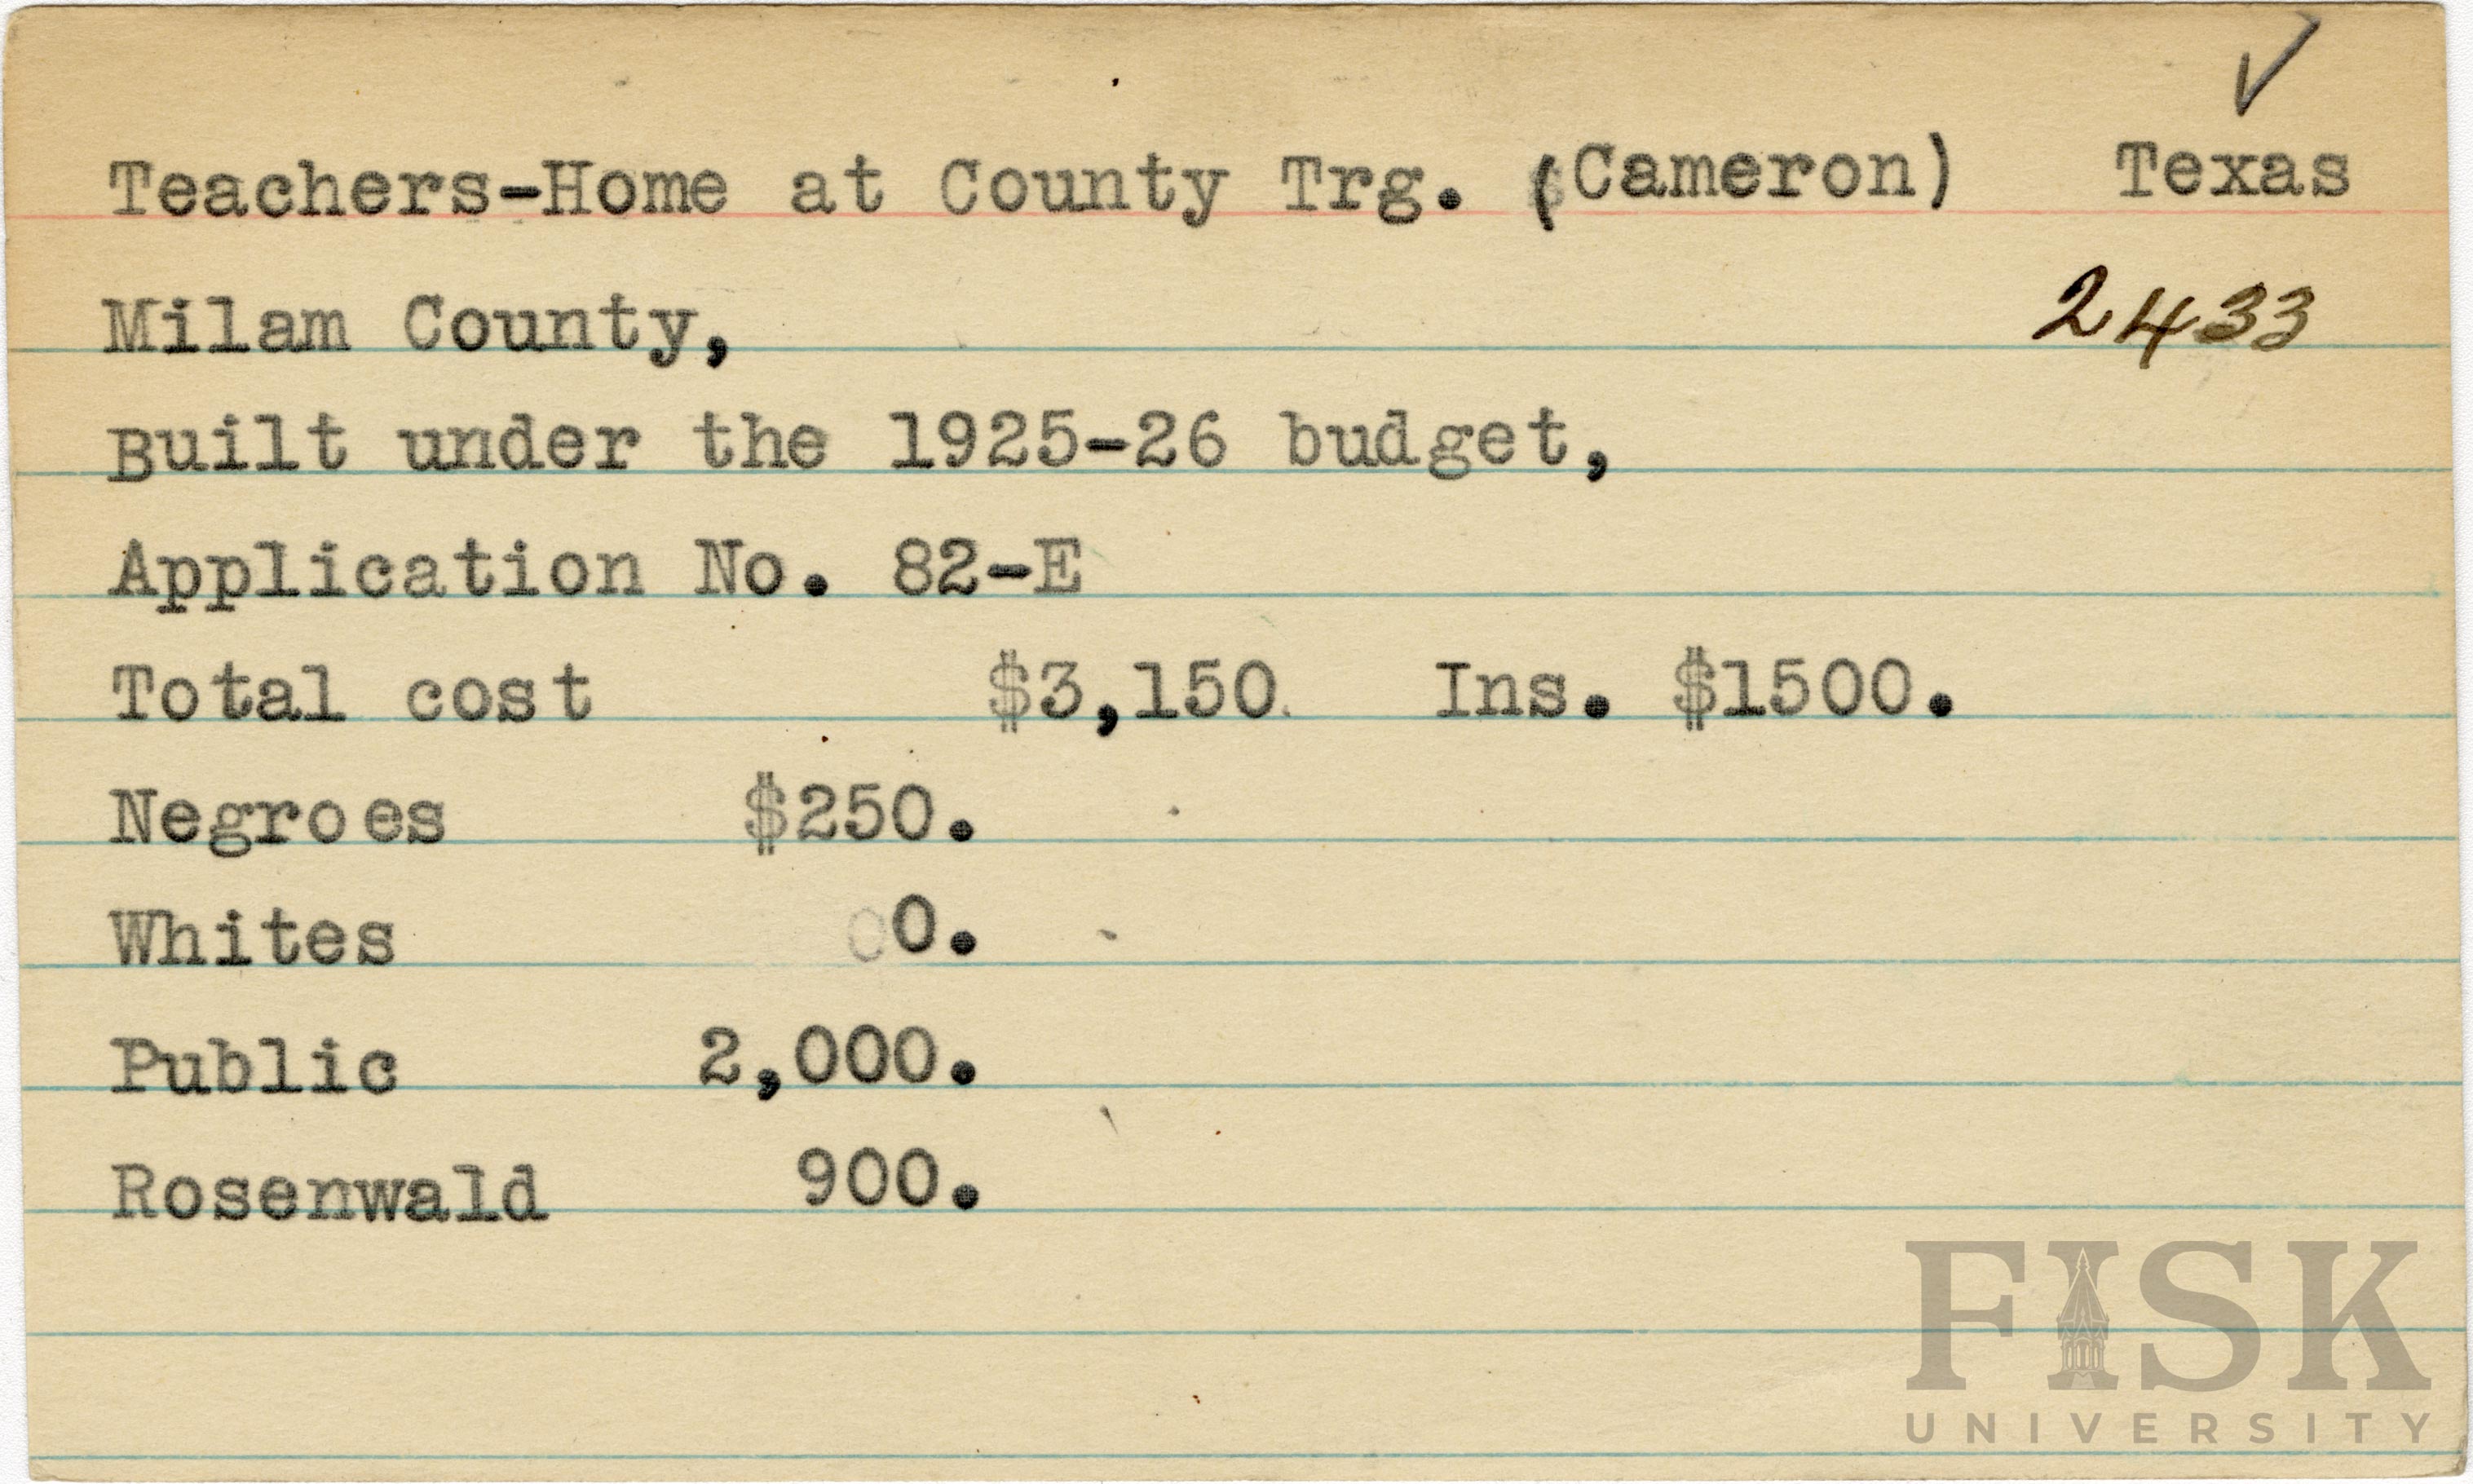 ✓
Teachers-Home at County Trg. (Cameron) Texas
Milam County, 2433
Built under the 1925-26 budget,
Application No. 82-E
Total cost $3,150. Ins. $1500.
Negroes $250.
Whites 00.
Public 2,000.
Rosenwald 900.
FISK
UNIVERSITY